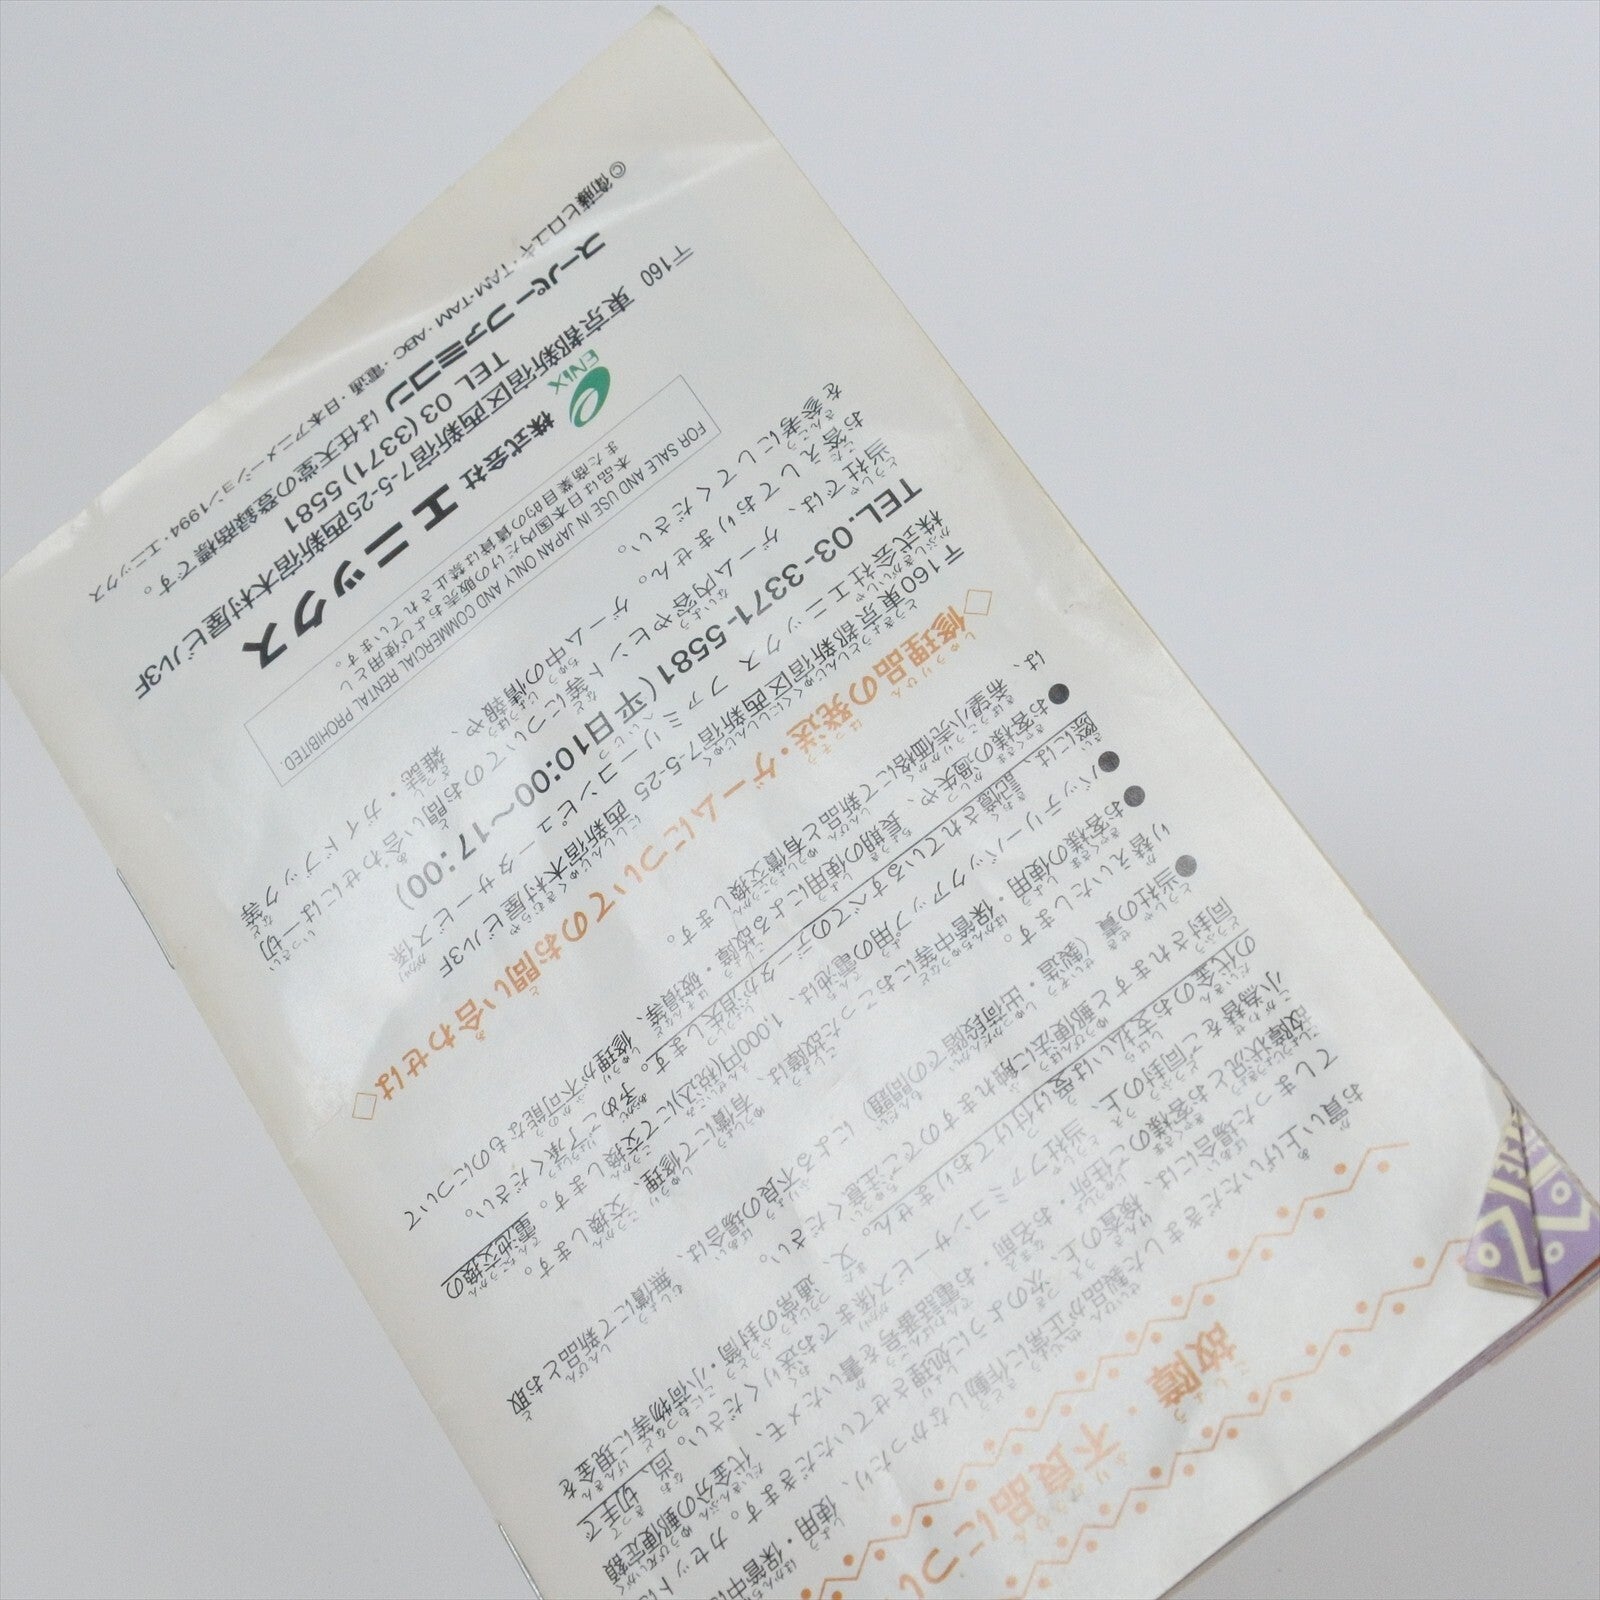 故障・不良品につい
お買い上げいただきました製品が正常に作動しなかったり、使用・保管中に
てしまった場合には、検査の上、次のように処理させていただきます。カセットに
故障状況とお客様のご住所・お名前・お電話番号を書いたメモ、代金分の郵便定額
小為替をご同封の上、当社ファミコンサービス係までお送りください。尚、切手で
の代金のお支払いは受け付けておりません。又、通常の封筒・小荷物等に現金を
同封されますと郵便法に触れますのでご注意ください。
●当社の責（製造・出荷段階での問題）による不良の場合は、無償にて新品とお取
り替えいたします。
●お客様の使用・保管中等におこった故障は、有償にて修理、交換します。
●バッテリーバックアップ用の電池は、1,000円(税込)にて交換します。電池交換の
際には、記憶されているすべてのデータが消失します。予めご了承ください。
●お客様の過失や、長期の使用による故障・破損等、修理が不可能なものについて
は、希望小売価格にて新品と有償交換します。
◇修理品の発送・ゲームについてのお問い合わせは◇
〒160東京都新宿区西新宿7-5-25 西新宿木村屋ビル3F
株式会社エニックス ファミリーコンピュータサービス係
TEL.03-3371-5581(平日10:00〜17:00)
当社では、ゲーム内容やヒント等についてのお問い合わせには一切
お答えしておりません。ゲーム中の情報や、雑誌・ガイドブック等
を参考にしてください。
FOR SALE AND USE IN JAPAN ONLY AND COMMERCIAL RENTAL PROHIBITED
本品は日本国内だけの販売および使用とし
また商業目的の賃貸は禁止されています。
ENIX
株式会社 エニックス
〒160 東京都新宿区西新宿7-5-25西新宿木村屋ビル3F
TEL 03(3371)5581
スーパーファミコンは任天堂の登録商標です。
©衛藤ヒロユキ・TAM・TAM・ABC・電通・日本アニメーション1994・エニックス